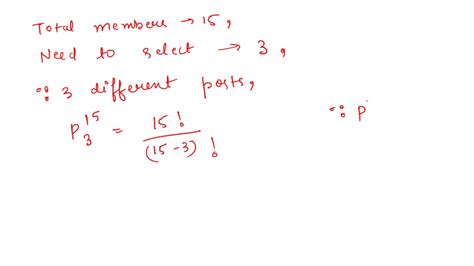 Total members → 15,
Need to select → 3,
∵ 3 different posts,
P₃¹⁵ = 15! / (15-3)!
∵ P